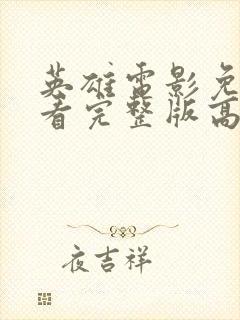 英雄电影免
看完整版高
夜吉祥